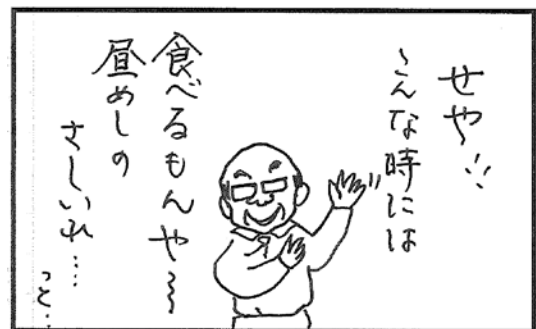 せや!!
こんな時には
食べるもんや〜〜
昼めしの
さしいれ……
っと…